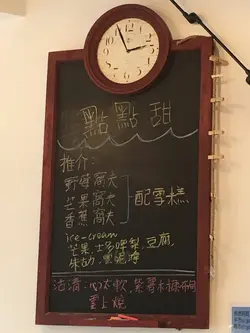 點點甜
推介:
野莓窩夫
芒果窩夫
香蕉窩夫
配雪糕
ice-cream
芒果,士多啤梨,豆腐,
朱古力,雲呢拿
活濟:心太軟